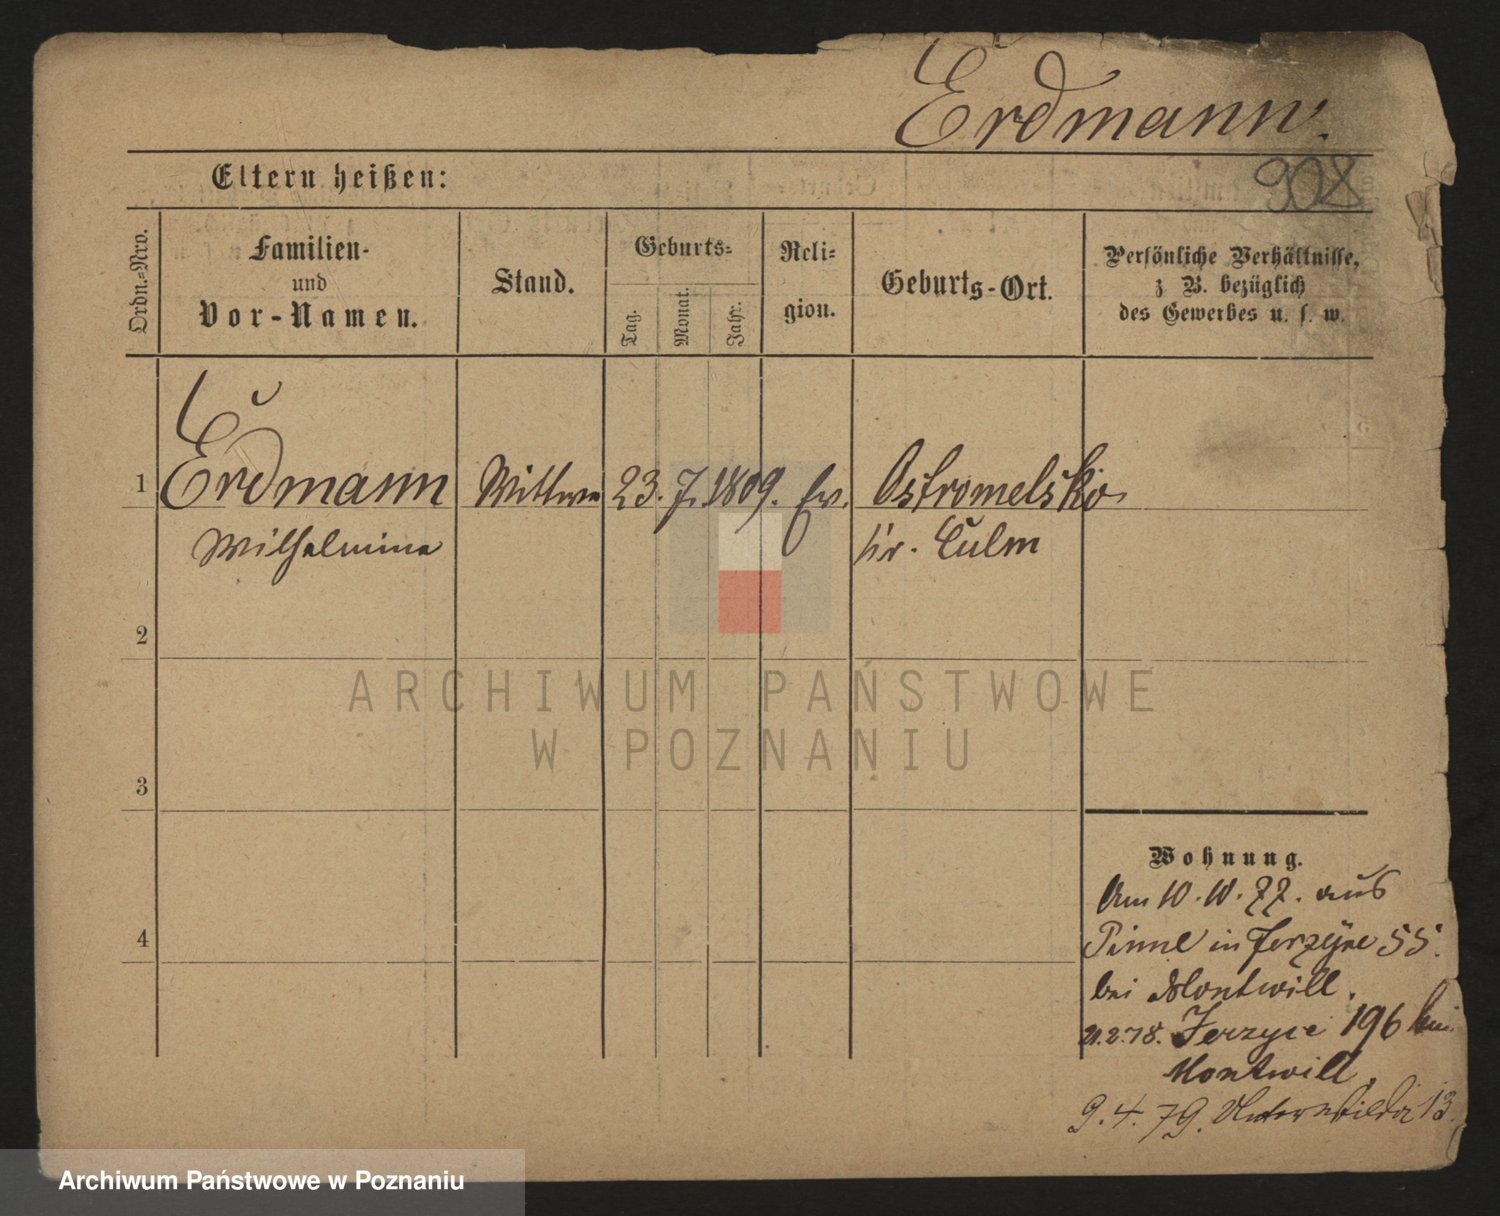 Erdmann.
908
Eltern heißen:
Ordn.-Nro.
Familien-
und
Vor-Namen.
Stand.
Geburts-
Tag.
Monat.
Jahr.
Reli-
gion.
Geburts-Ort.
Persönliche Verhältnisse,
z B. bezüglich
des Gewerbes u. s. w.
1
Erdmann Wittwe 23. 7. 1809. Ev. Ostromelsko
Wilhelmine Kr. Culm
2
3
4
ARCHIWUM PAŃSTWOWE
W POZNANIU
Wohnung.
Am 10. 10. 77. aus
Pinne in Jerzyce 55.
bei Montwill.
21.2.78. Jerzyce 196 bei
Montwill.
9. 4. 79. Unterwilda 13.
Archiwum Państwowe w Poznaniu